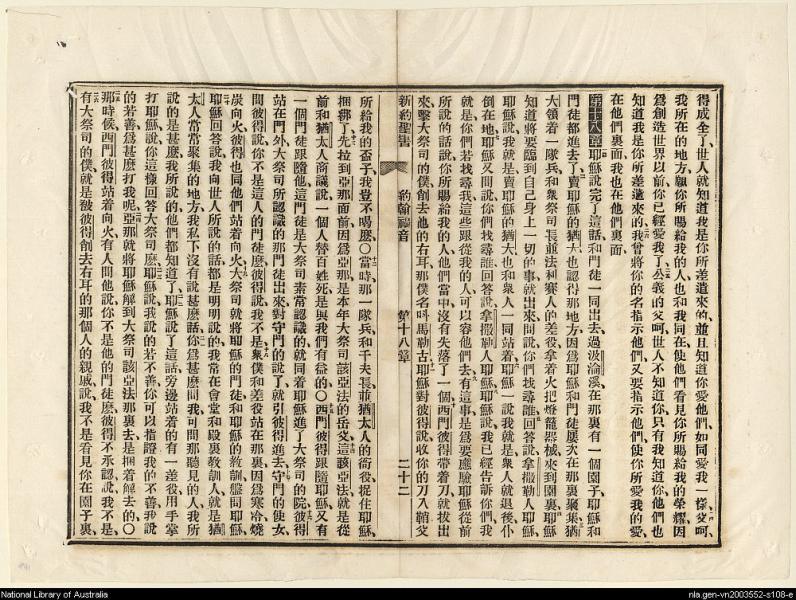 得成全了、世人就知道我是你所差遣來的、並且知道你愛他們、如同愛我一樣、父呵
我所在的地方、願你所賜給我的人也和我同在、使他們看見你所賜給我的榮耀、因
爲創造世界以前、你已經愛我了、公義的父呵、世人不知道你、只有我知道你、他們也
知道我是你所差遣來的、我曾將你的名指示他們、又要指示他們、使你所愛我的愛、
在他們裏面、我也在他們裏面、
第十八章耶穌說完了這話、和門徒一同出去、過汲淪溪、在那裏有一個園子、耶穌和
門徒都進去了、賣耶穌的猶大、也認得那地方、因爲耶穌和門徒屢次在那裏聚集、猶
大領着一隊兵、和衆祭司長並法利賽人的差役、拿着火把燈籠器械、來到園裏、耶穌
知道將要臨到自己身上一切的事、就出來問說、你們找尋誰、回答說、拿撒勒人耶穌、
耶穌說、我就是、賣耶穌的猶大也和衆人一同站着、耶穌一說我就是、衆人就退後仆
倒在地、耶穌又問說、你們找尋誰、回答說、拿撒勒人耶穌、耶穌說、我已經告訴你們、我
就是、你們若找尋我、這些跟從我的人、可以容他們去、有這事是爲要應驗耶穌從前
所說的話說、你所賜給我的人、他們當中沒有失落了一個、西門彼得帶着刀、就拔出
來、擊大祭司的僕、削去他的右耳、那僕名叫馬勒古、耶穌對彼得說、收你的刀入鞘、父
新約聖書 約翰福音 第十八章 二十二
所給我的盃子、我豈不喝麽、○當時那一隊兵和千夫長、並猶太人的衙役捉住耶穌、
捆綁了、先拉到亞那面前、因爲亞那是本年大祭司該亞法的岳父、這該亞法就是從
前和猶太人商議說、一個人替百姓死、是與我們有益的、○西門彼得跟隨耶穌、又有
一個門徒跟隨他、這門徒是大祭司素常認識的、就同着耶穌進了大祭司的院、彼得
站在門外、大祭司所認識的那門徒出來、對守門的說了、就引彼得進去、守門的使女
問彼得說、你不是這人的門徒麽、彼得說、我不是、衆僕和差役站在那裏、因爲寒冷、燒
炭向火、彼得也同他們站着向火、大祭司就將耶穌的門徒和耶穌的教訓盤問耶穌、
耶穌回答說、我向世人所說的話、都是明明說的、我常在會堂和殿裏教訓人、就是猶
太人常常聚集的地方、我私下沒有說甚麽話、你爲甚麽問我、可問那聽見的人、我所
說的是甚麽、我所說的他們都知道了、耶穌說了這話、旁邊站着的有一差役、用手掌
打耶穌說、你這樣回答大祭司麽、耶穌說、我說的若不善、你可以指證我的不善、我說
的若善、爲甚麽打我呢、亞那就將耶穌解到大祭司該亞法那裏去、是捆着解去的、○
那時候、西門彼得站着向火、有人問他說、你不是他的門徒麽、彼得不承認說、我不是、
有大祭司的僕、就是被彼得削去右耳的那個人的親戚說、我不是看見你在園子裏、
National Library of Australia
nla.gen-vn2003552-s108-e